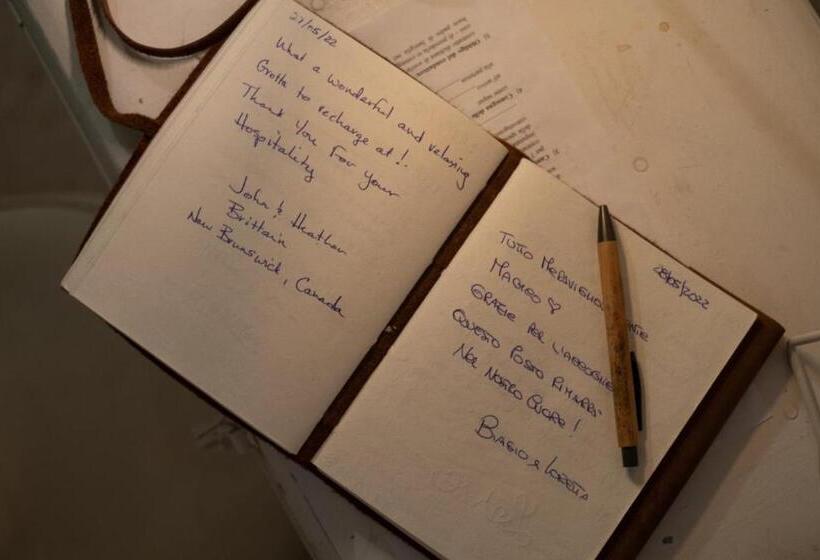 27/05/22
What a wonderful and relaxing
Grotta to recharge at!.
Thank You For Your
Hospitality
John & Heather
Brittain
New Brunswick, Canada
28/05/2022
TUTTO
MAGICO ♡
GRAZIE PER L'ACCOGLIE
QUESTO POSTO RIMARRÀ
NEL NOSTRO CUORE!
BIAGIO e LOREDA